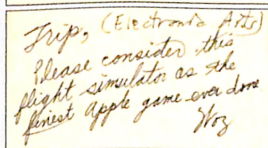 Trip, (Electronic Arts)
Please consider this
flight simulator as the
finest Apple game ever done
Woz